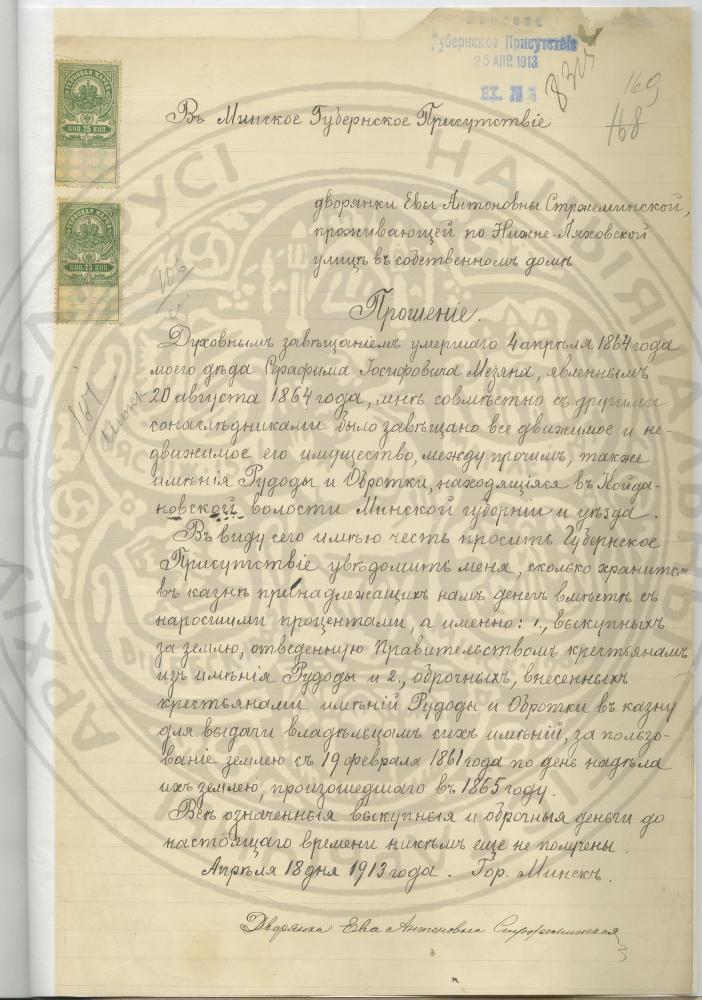 МИНСКОЕ
Губернское Присутствіе
25 АПР. 1913
ВХ. №
169
168
Въ Минское Губернское Присутствіе
дворянки Евы Антоновны Стржеминской,
проживающей по Нижне-Ляховской
улицѣ въ собственномъ домѣ
Прошеніе.
Духовнымъ завѣщаніемъ умершаго 4 апрѣля 1864 года
моего дѣда Серафима Іосифовича Мезяна, явленнымъ
20 августа 1864 года, мнѣ совмѣстно съ другими
сонаслѣдниками было завѣщано все движимое и не-
движимое его имущество, между прочимъ, также
имѣнія Рудоды и Обротки, находящіяся въ Койда-
новской волости Минской губерніи и уѣзда.
Въ виду сего имѣю честь просить Губернское
Присутствіе увѣдомить меня, сколько хранится
въ казнѣ принадлежащихъ намъ денегъ вмѣстѣ съ
наросшими процентами, а именно: 1., выкупныхъ
за землю, отведенную Правительствомъ крестьянамъ
изъ имѣнія Рудоды и 2., оброчныхъ, внесенныхъ
крестьянами имѣній Рудоды и Обротки въ казну
для выдачи владѣльцамъ сихъ имѣній, за пользо-
ваніе землею съ 19 февраля 1861 года по день надѣла
ихъ землею, произошедшаго въ 1865 году.
Всѣ означенныя выкупныя и оброчныя деньги до
настоящаго времени никѣмъ еще не получены.
Апрѣля 18 дня 1913 года. Гор. Минскъ.
Дворянка Ева Антоновна Стржеминская
КОП. 75 КОП.
КОП. 75 КОП.